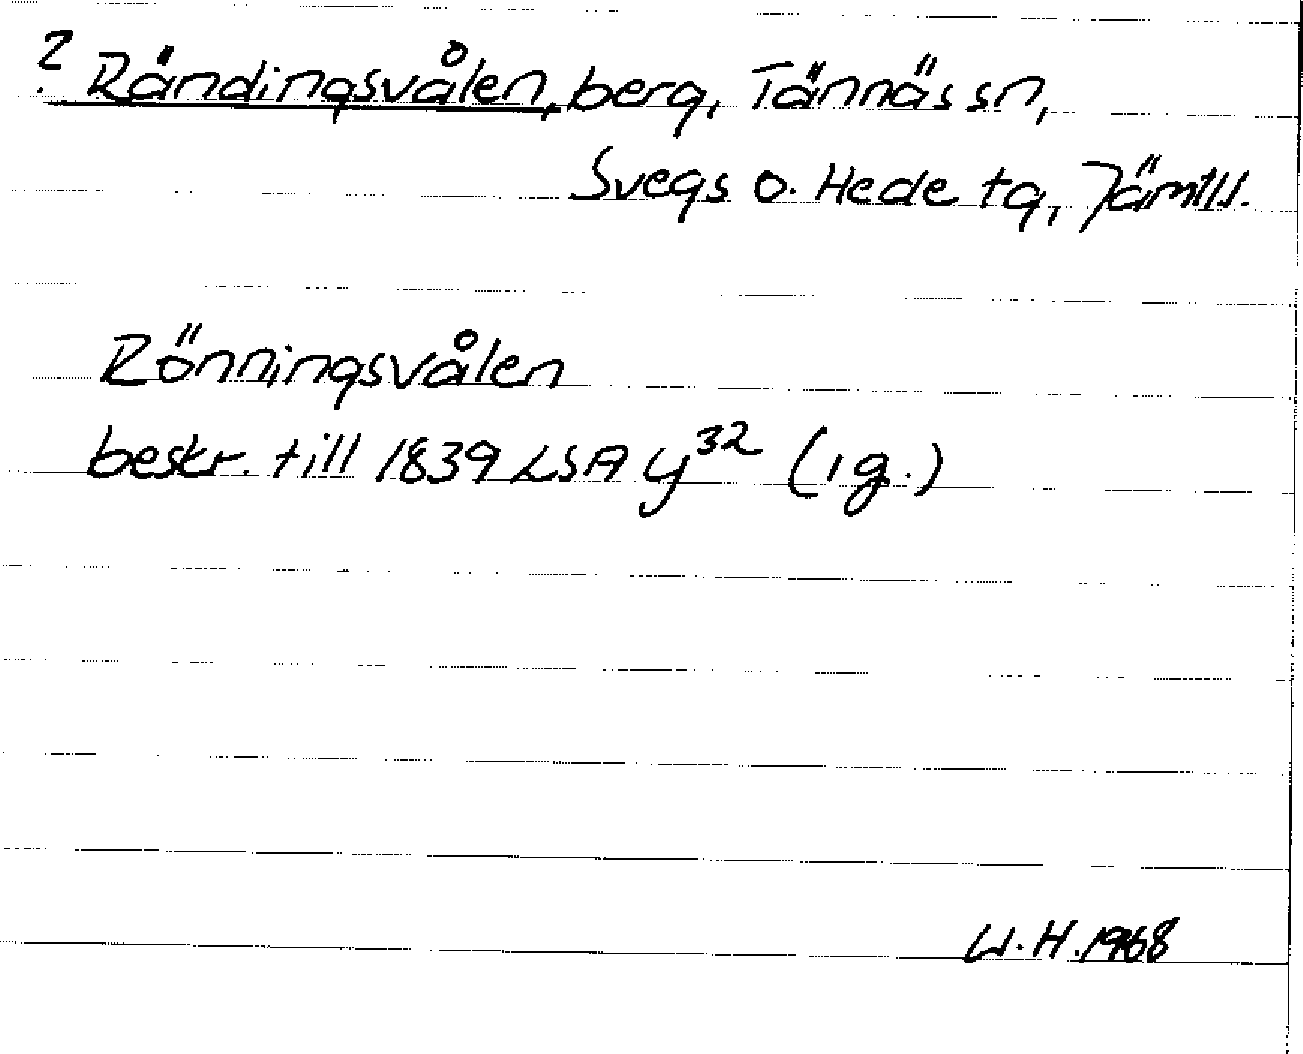 ? Rändingsvålen, berg, Tännäs sn,
Svegs o. Hede tg, Jämtl l.
Rönningsvålen
beskr. till 1839 LSA y³² (1 g.)
W.H. 1968